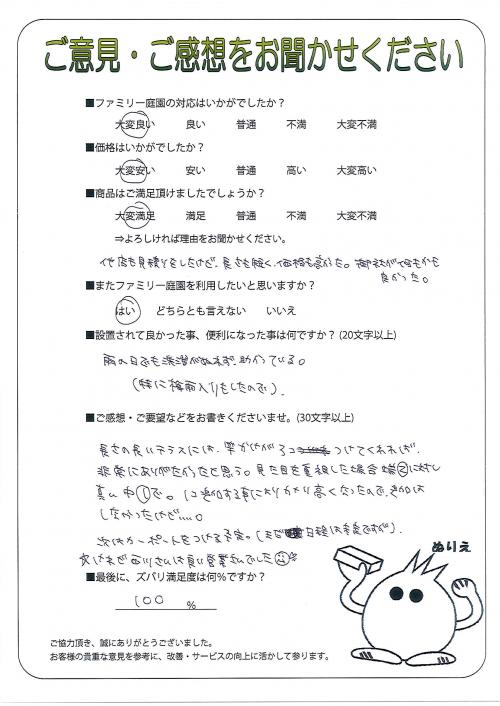 ご意見・ご感想をお聞かせください
■ファミリー庭園の対応はいかがでしたか？
大変良い 良い 普通 不満 大変不満
■価格はいかがでしたか？
大変安い 安い 普通 高い 大変高い
■商品はご満足頂けましたでしょうか？
大変満足 満足 普通 不満 大変不満
⇒よろしければ理由をお聞かせください。
他店も見積りをしたけど、長さも短く、価格も高かった。御社が何もかも
良かった。
■またファミリー庭園を利用したいと思いますか？
はい どちらとも言えない いいえ
■設置されて良かった事、便利になった事は何ですか？(20文字以上)
雨の日でも洗濯がぬれず、助かっている。
(特に梅雨入りをしたので)。
■ご感想・ご要望などをお書きくださいませ。(30文字以上)
長さの長いテラスには、竿かけが3コ つけてくれれば、
非常にありがたかったと思う。見た目を重視した場合端②に対し
真ん中①で。1コ追加する事によりかなり高くなったので、追加は
しなかったけど....。
次はカーポートをつける予定。(まだ 日程は未定ですが)。
西川さんは良い営業さんでした
■最後に、ズバリ満足度は何％ですか？
100 ％
ぬりえ
ご協力頂き、誠にありがとうございました。
お客様の貴重な意見を参考に、改善・サービスの向上に活かして参ります。